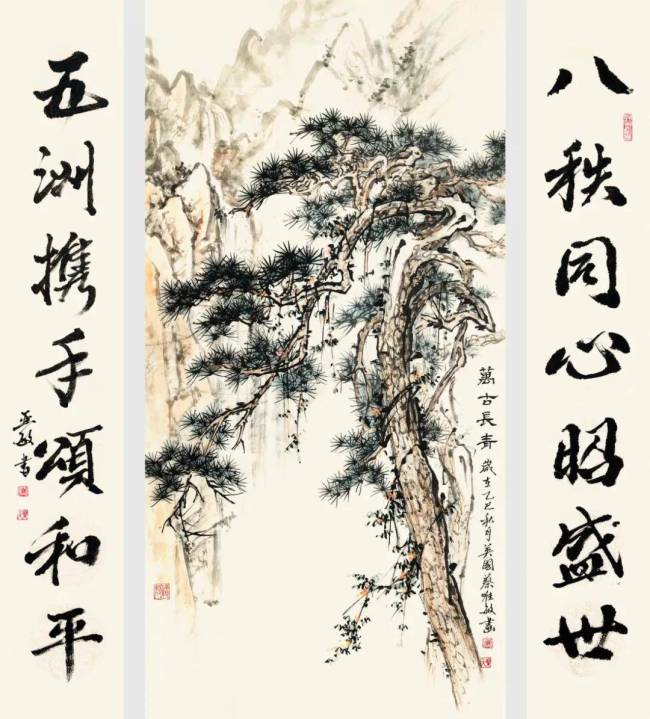 八秩同心昭盛世
萬古長青
歲在乙巳秋月英國蔡唯敏畫
五洲携手頌和平
亚敏書